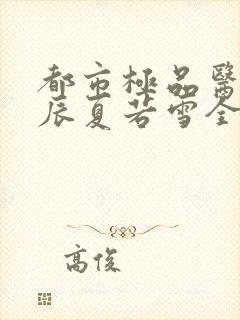 都市極品醫
辰夏若雪全
高俊